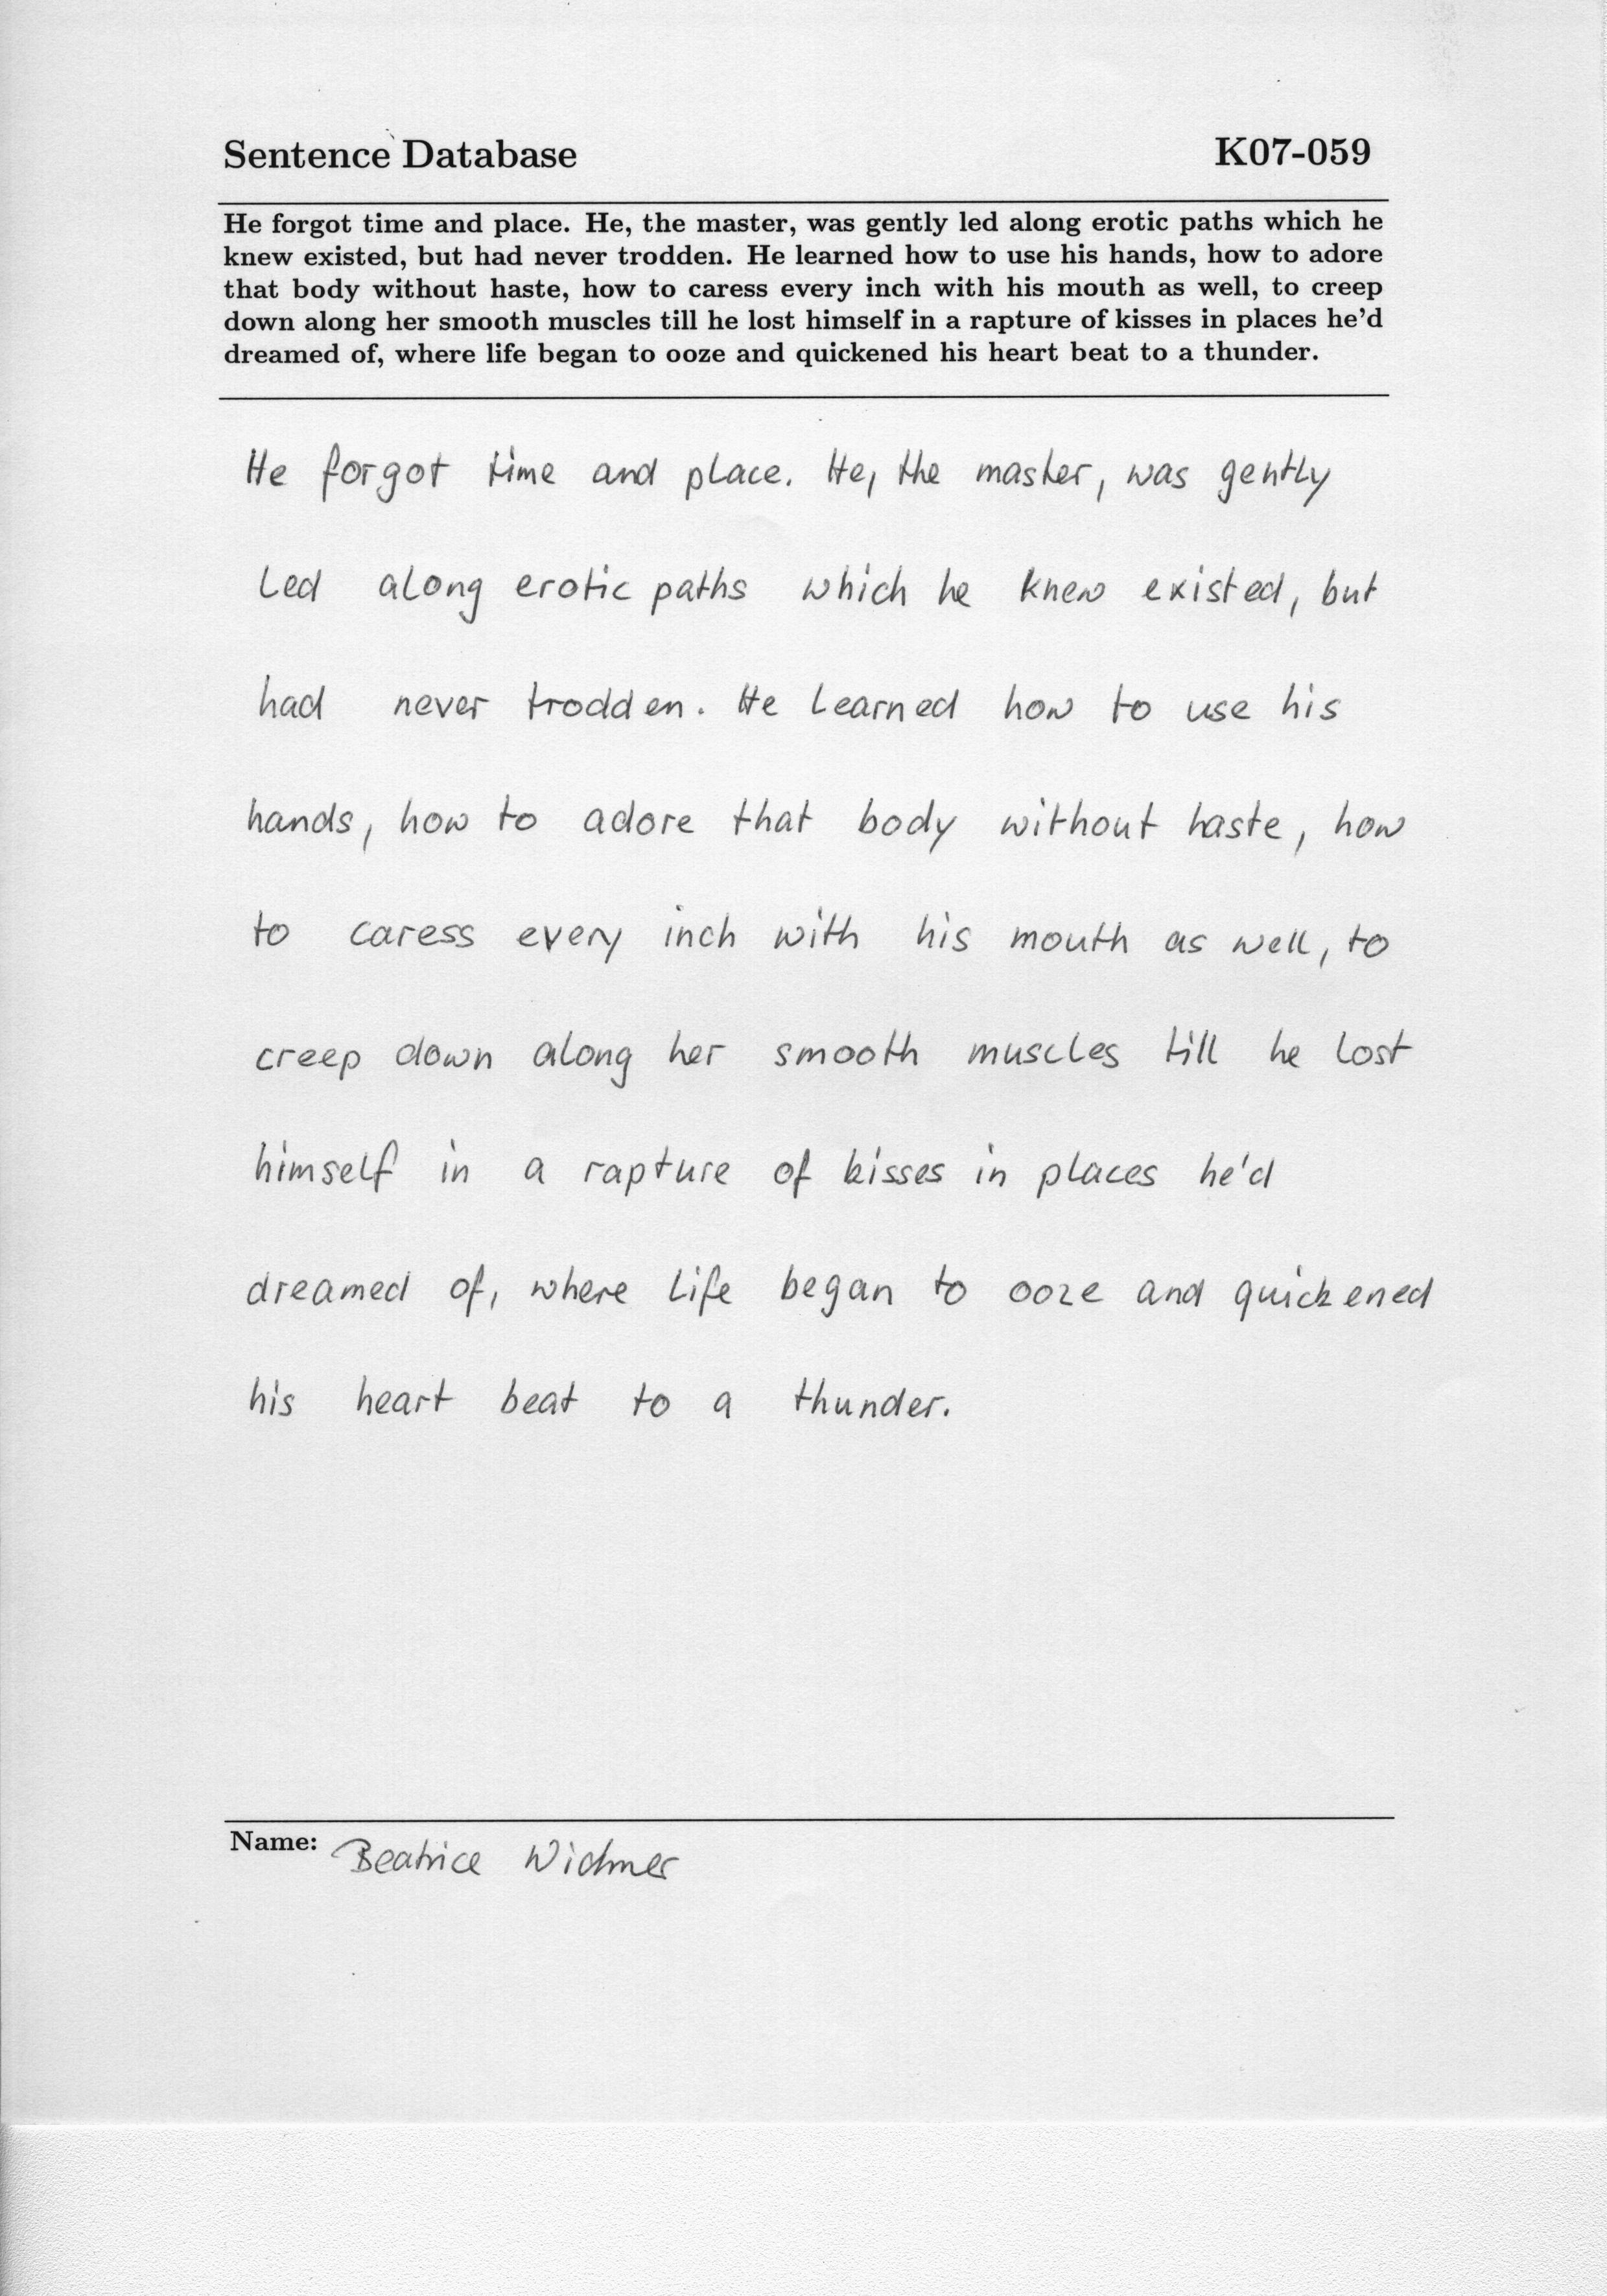 Sentence Database K07-059
He forgot time and place. He, the master, was gently led along erotic paths which he
knew existed, but had never trodden. He learned how to use his hands, how to adore
that body without haste, how to caress every inch with his mouth as well, to creep
down along her smooth muscles till he lost himself in a rapture of kisses in places he'd
dreamed of, where life began to ooze and quickened his heart beat to a thunder.
He forgot time and place. He, the master, was gently
led along erotic paths which he knew existed, but
had never trodden. He learned how to use his
hands, how to adore that body without haste, how
to caress every inch with his mouth as well, to
creep down along her smooth muscles till he lost
himself in a rapture of kisses in places he'd
dreamed of, where life began to ooze and quickened
his heart beat to a thunder.
Name: Beatrice Widmer